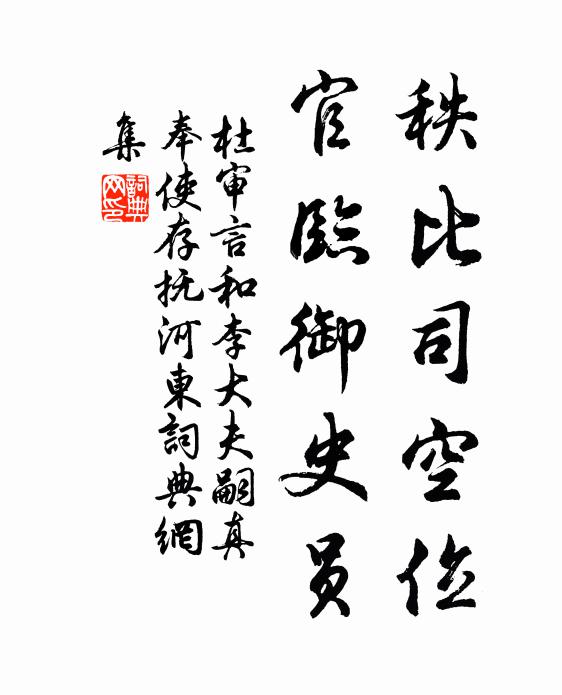 秩比司空位
官臨御史员
杜审言和李大夫嗣真
奉使存抚河東詞典網
集
詞典
网印